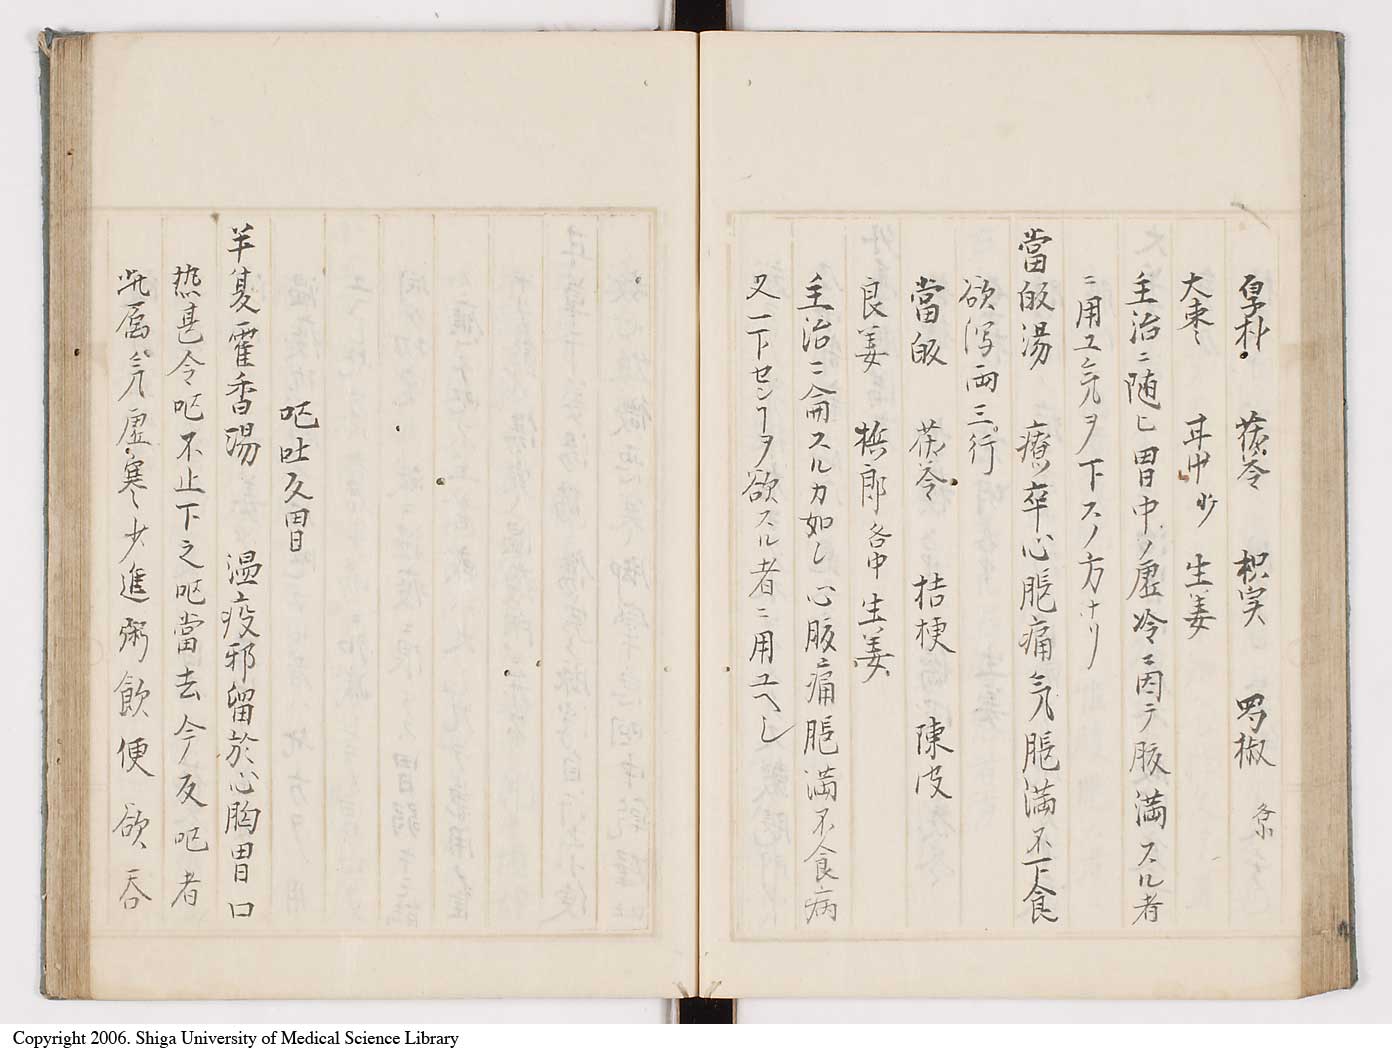 厚朴　茯苓　枳実　蜀椒　各小
大棗　耳艸少　生姜
主治ニ随ヒ胃中ノ虚冷ニ因テ腹満スル者
ニ用ユ気ヲ下スノ方ナリ
當皈湯　療卒心腹痛気脹満不下食
欲泻両三行
當皈　茯苓　桔梗　陳皮
良姜　梹郎各中　生姜
主治ニ侖スルカ如シ心腹痛脹満不食病
又一下センヿヲ欲スル者ニ用ユヘし
呕吐反胃
半夏霍香湯　温疫邪留於心胸胃口
热甚令呕不止下之呕當去今反呕者
此属胃气虚寒少進粥飲便欲吞
Copyright 2006. Shiga University of Medical Science Library